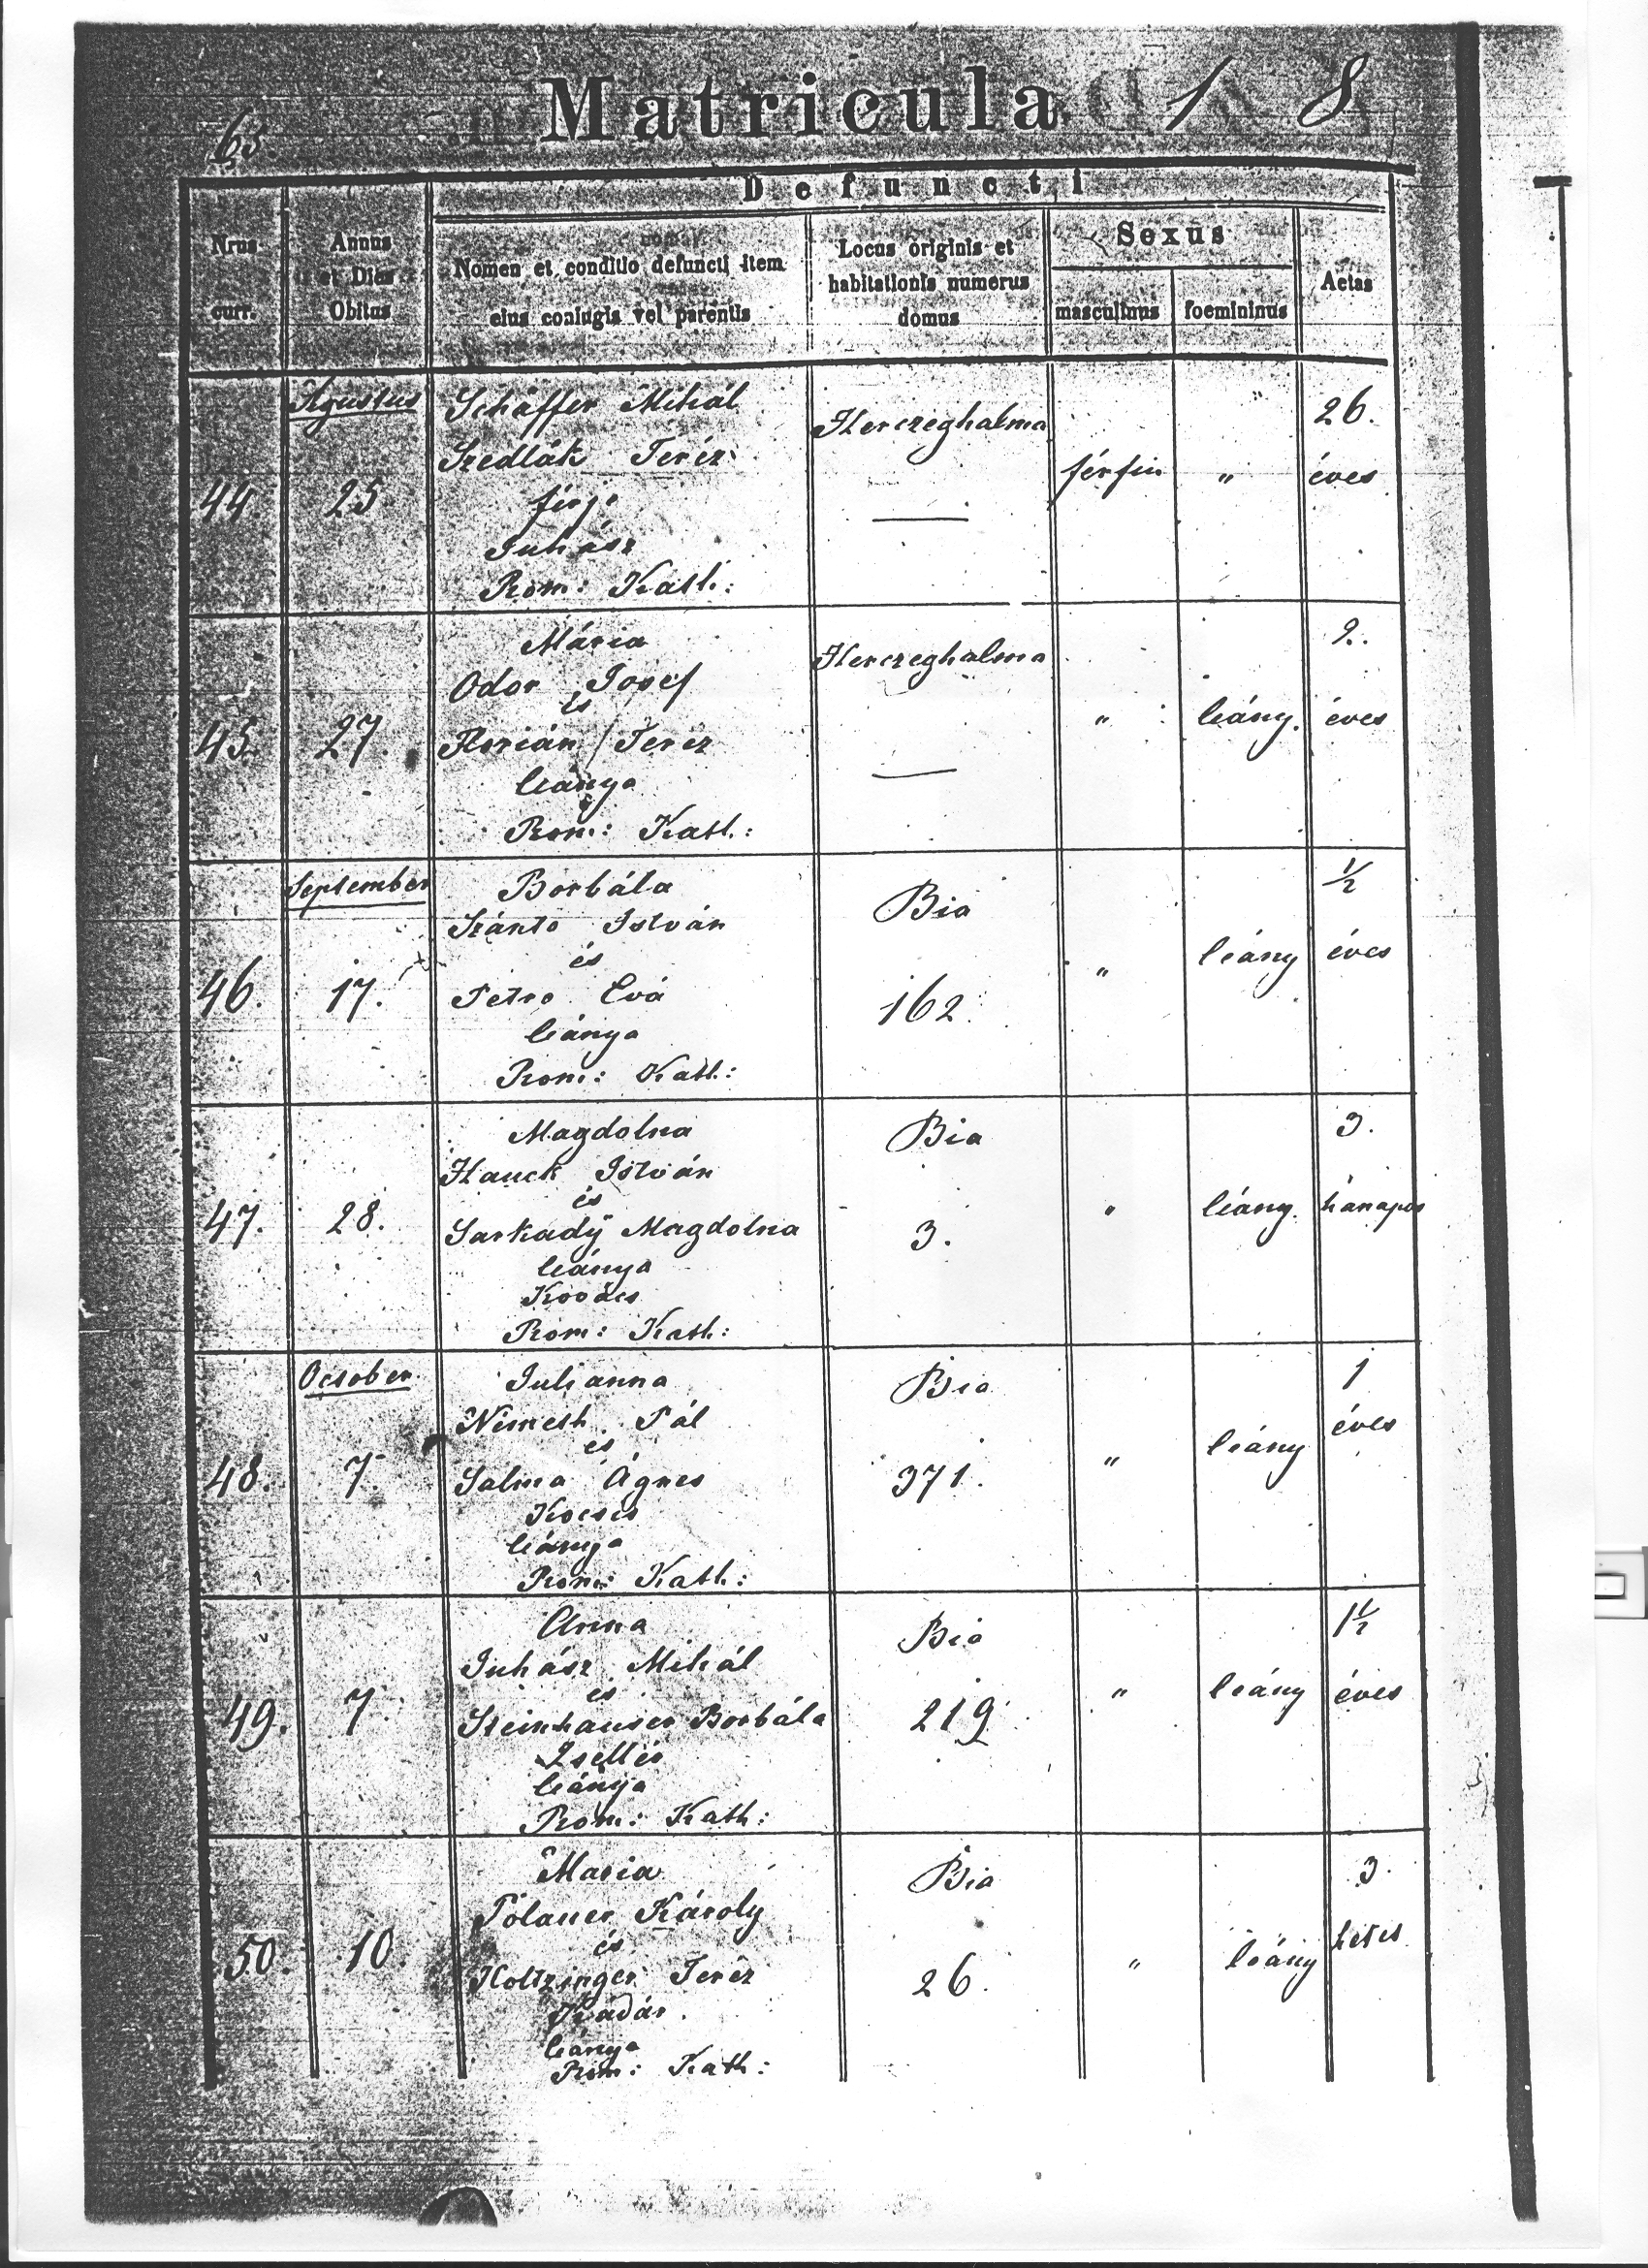 Matricula 1 8
63.
Defuncti
Nrus
curr.
Annus
et Dies
Obitus
Nomen et conditio defuncti item
eius coniugis vel parentis
Locus originis et
habitationis numerus
domus
Sexus
masculinus
foemininus
Aetas
Agustus
44.
25
Schäffer Mihál
Szedlák Teréz
férje
Juhász
Rom: Kath:
Herczeghalma
—
férfiu
"
"
26.
éves
45.
27.
Mária
Odor Josef
és
Florián Teréz
leánya
Rom: Kath.:
Herczeghalma
—
"
leány.
2.
éves
September
46.
17.
Borbála
Szánto István
és
Petro Evá
leánya
Rom: Kath.:
Bia
162.
"
leány
½
éves
47.
28.
Magdolna
Hauck István
és
Sarkadÿ Magdolna
leánya
Kovács
Rom: Kath:
Bia
3.
"
leány.
3.
hónapos
October
48.
7.
Julianna
Németh Pál
és
Salma Ágnes
Kocsis
leánya
Rom: Kath:
Bia
371.
"
leány
1
éves
49.
7.
Anna
Juhász Mihál
és
Steinhauser Borbála
Zsellér
leánya
Rom: Kath:
Bia
219.
"
leány
1½
éves
50.
10.
Maria
Polauer Károly
és
Holtzinger Teréz
Kadár.
leánya
Rom: Kath:
Bia
26.
"
leány
3.
hetes